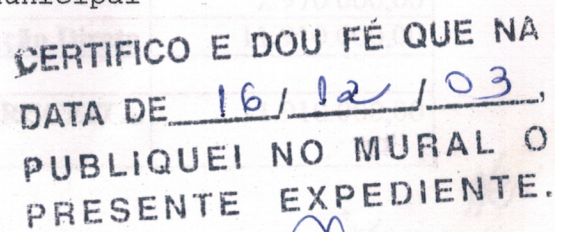 unicipal
CERTIFICO E DOU FÉ QUE NA
DATA DE 16/12/03,
PUBLIQUEI NO MURAL O
PRESENTE EXPEDIENTE.